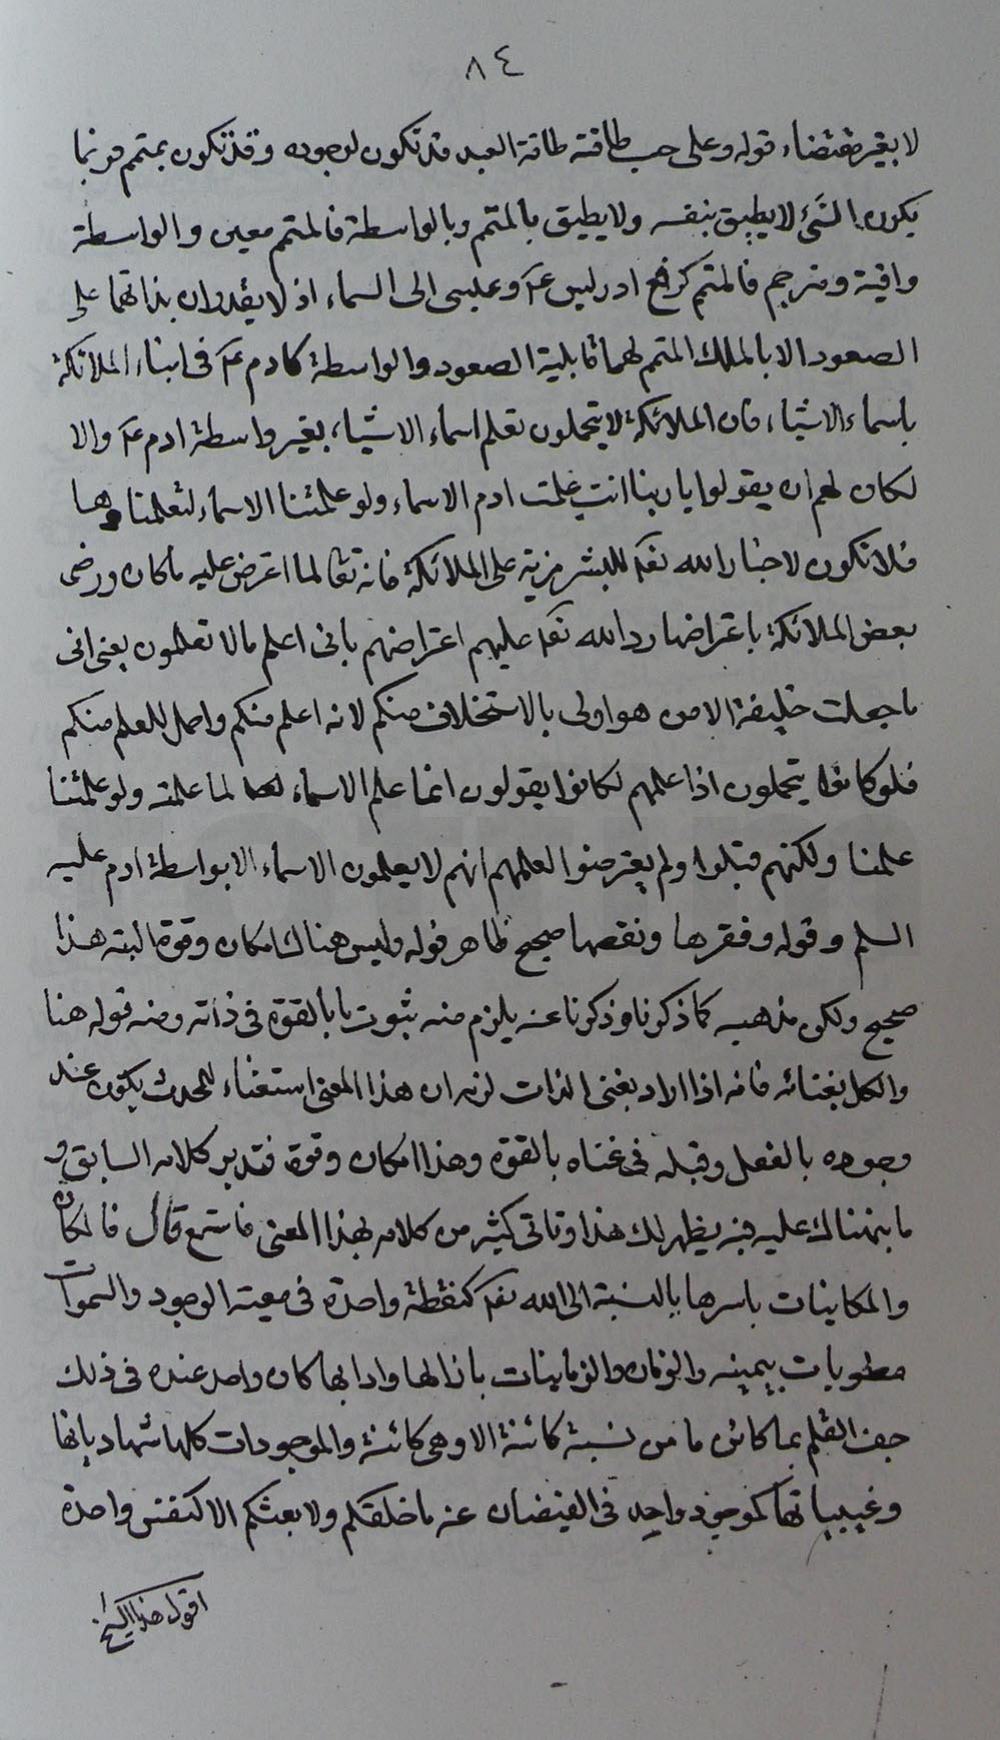 ٨٤
لا بغير مقتضاء قوله وعلى حسب طاقته طاقة العبد قد تكون لوجوده وقد تكون بمتمم فربما
يكون الشئ لا يطيق بنفسه ولا يطيق بالمتمم وبالواسطة فالمتمم معين والواسطة
واقية ومترجم فالمتمم كرفع ادريس ع٣ وعيسى الى السماء اذ لا يقدران بذاتهما على
الصعود الا بالملك المتمم لهما قابلية الصعود والواسطة كادم ع٣ فى انباء الملائكة
باسماء الاشياء فان الملائكة لا يتحملون تعلم اسماء الاشياء بغير واسطة ادم ع٣ والا
لكان لهم ان يقولوا يا ربنا انت علمت ادم الاسماء ولو علمتنا الاسماء لتعلمناها
فلا تكون لاخبار الله تعه للبشر مزية على الملائكة فانه تعالى لما اعترض عليه ماكان ورضى
بعض الملائكة باعتراضها رد الله تعه عليهم اعتراضهم بانى اعلم مالا تعلمون يعنى انى
ما جعلت خليفة الا من هو اولى بالاستخلاف منكم لانه اعلم منكم واحمل للعلم منكم
فلو كانوا يتحملون اذا علمهم لكانوا يقولون انما علم الاسماء لما علمته ولو علمتنا
علمنا ولكنهم قبلوا ولم يعترضوا لعلمهم انهم لا يعلمون الاسماء الا بواسطة ادم عليه
السلم وقوله وفقرها ونقصها صحيح ظاهر قوله وليس هناك امكان وقوة البته هذا
صحيح ولكن مذهبه كما ذكرنا وذكرنا عنه يلزم منه ثبوت ما بالقوة فى ذاته ومنه قوله هنا
والكل بغنائه فانه اذا اراد بغنى الذات لزمه ان هذا المعنى استغناء للمحدث يكون عند
وجوده بالفعل وقبله فى غناه بالقوة وهذا امكان وقوة فتدبر كلامه السابق و
ما نبهناك عليه فيه يظهر لك هذا وتاتى كثير من كلامه بهذا المعنى فاستمع قال فالمكان
والمكانيات باسرها بالنسبة الى الله تعه كنقطة واحدة فى معية الوجود والسموات
مطويات بيمينه والزمان والزمانيات بازالها وابادها كان واحد عنده فى ذلك
جف القلم بما هو كائن ما من نسمة كائنة الا وهى كائنة والموجودات كلها شهادياتها
وغيبياتها كموجود واحد فى الفيضان عنه ما خلقكم ولا بعثكم الا كنفس واحدة
اقول هذا الشيخ